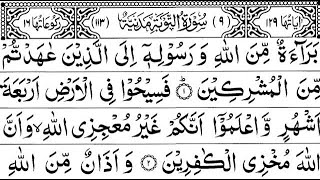 اٰیَاتُهَا ۱۲۹ (۹) سُوْرَةُ التَّوْبَةِ مَدَنِیَّةٌ (۱۱۳) رُكُوْعَاتُهَا ۱۶
بَرَآءَةٌ مِّنَ اللّٰهِ وَ رَسُوْلِهٖۤ اِلَی الَّذِیْنَ عٰهَدْتُّمْ
مِّنَ الْمُشْرِكِیْنَ ۱ فَسِیْحُوْا فِی الْاَرْضِ اَرْبَعَةَ
اَشْهُرٍ وَّ اعْلَمُوْۤا اَنَّكُمْ غَیْرُ مُعْجِزِی اللّٰهِ ۙ وَ اَنَّ
اللّٰهَ مُخْزِی الْكٰفِرِیْنَ ۲ وَ اَذَانٌ مِّنَ اللّٰهِ